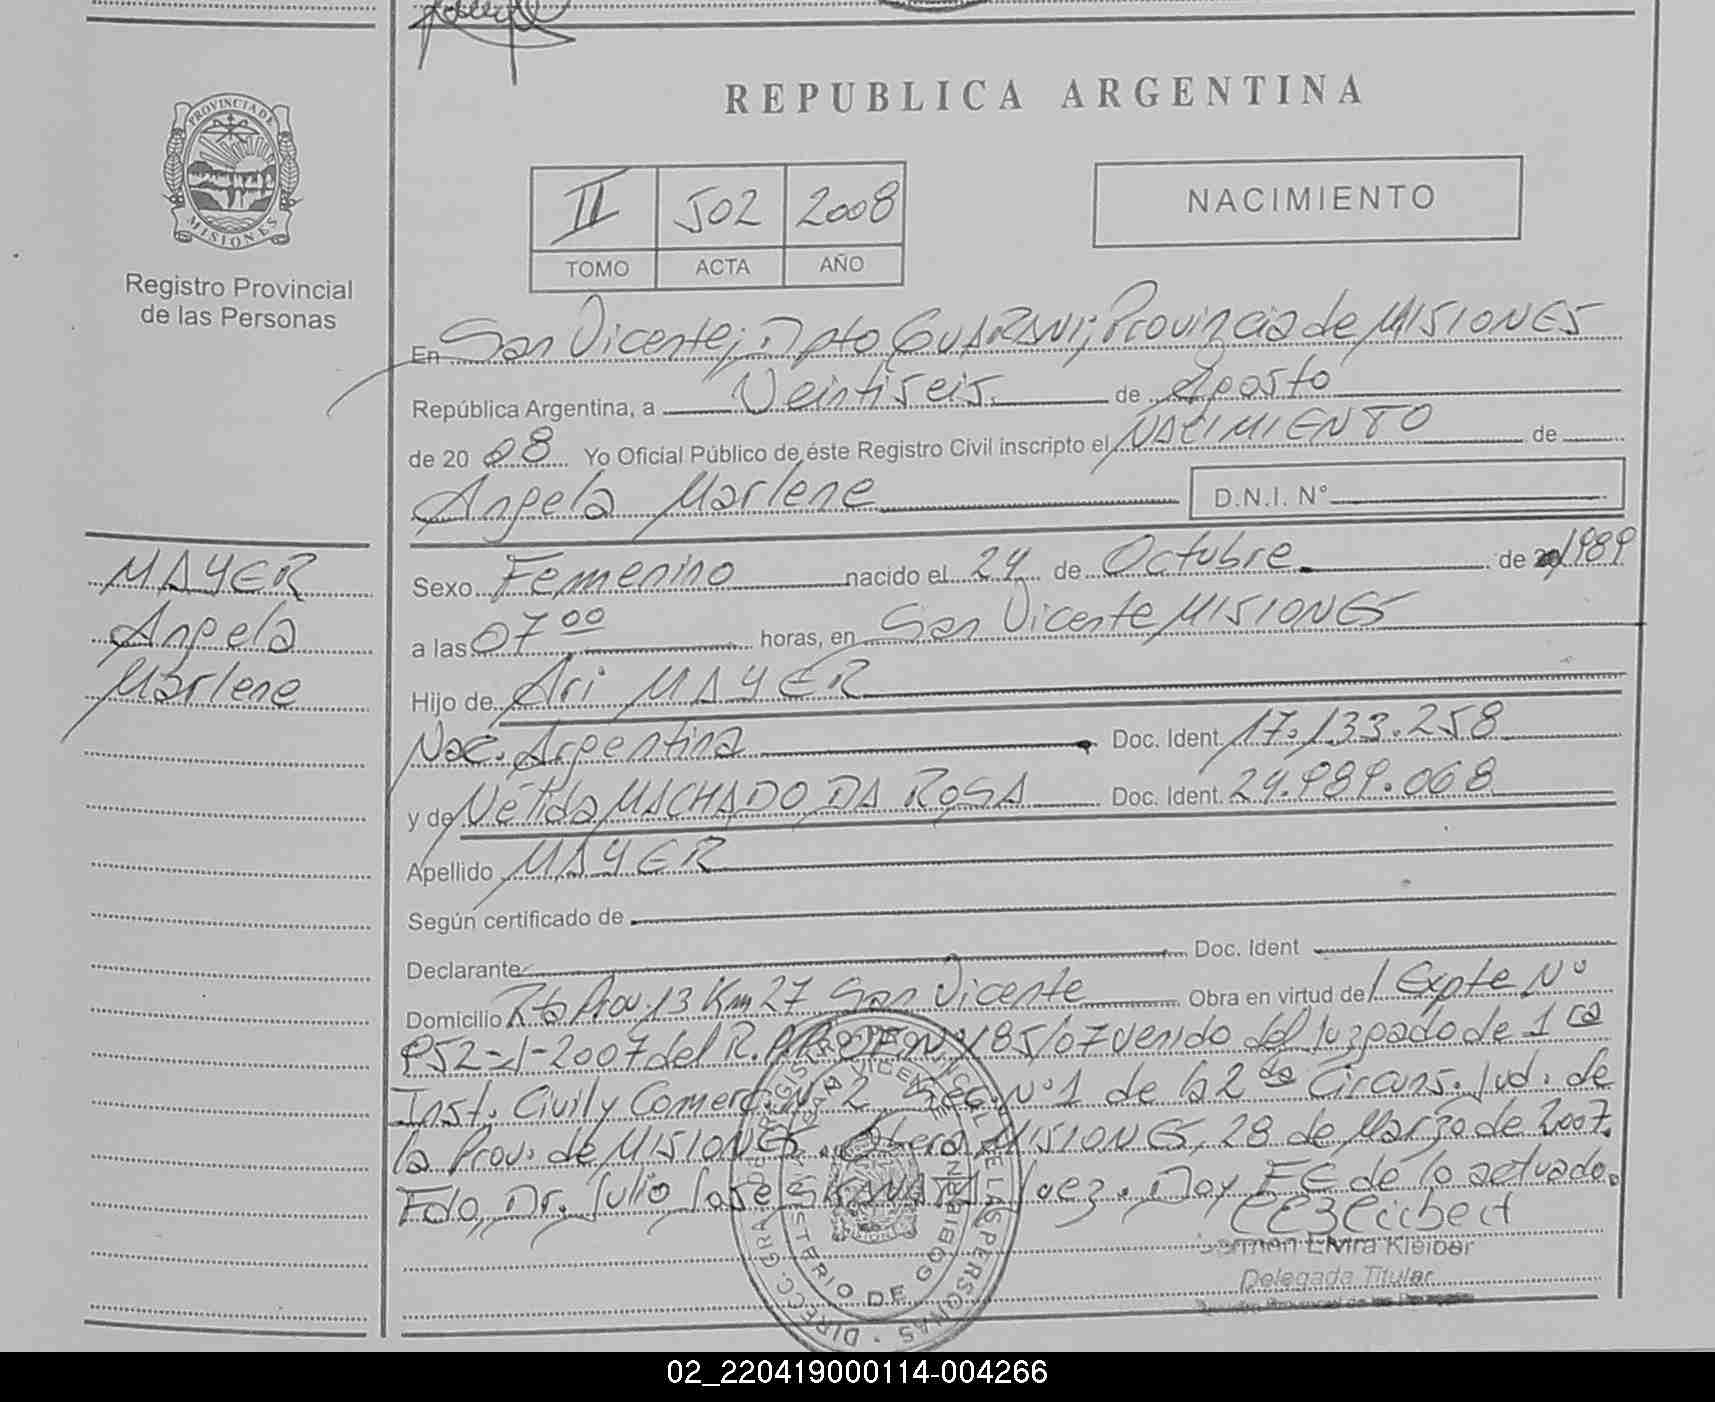 REPUBLICA ARGENTINA
PROVINCIA DE
MISIONES
Registro Provincial
de las Personas
II 502 2008
TOMO ACTA AÑO
NACIMIENTO
En San Vicente; Dpto GUARANI; Provincia de MISIONES
República Argentina, a Veintiseis. de Agosto
de 20 08 Yo Oficial Público de éste Registro Civil inscripto el NACIMIENTO de
Angela Marlene D.N.I. N°
MAYER
Angela
Marlene
Sexo Femenino nacido el 24 de Octubre de 1989
a las 07 00 horas, en San Vicente MISIONES
Hijo de Ari MAYER
Nac. Argentina Doc. Ident. 17.133.258
y de Nélida MACHADO DA ROSA Doc. Ident. 24.989.068
Apellido MAYER
Según certificado de
Declarante Doc. Ident
Domicilio Rta Prov. 13 Km 27 San Vicente Obra en virtud de Expte Nº
del R.P. 185/07 venido del Juzgado de 1ra
Inst. Civil y Comerc. Nº 2 Sec. Nº 1 de la 2da Circuns. Jud. de
la Prov. de MISIONES. Obera MISIONES, 28 de Marzo de 2007.
Fdo, Dr. Julio José Juez. Doy FE de lo actuado.
Carmen Elvira Kleiber
Delegada Titular
02_220419000114-004266